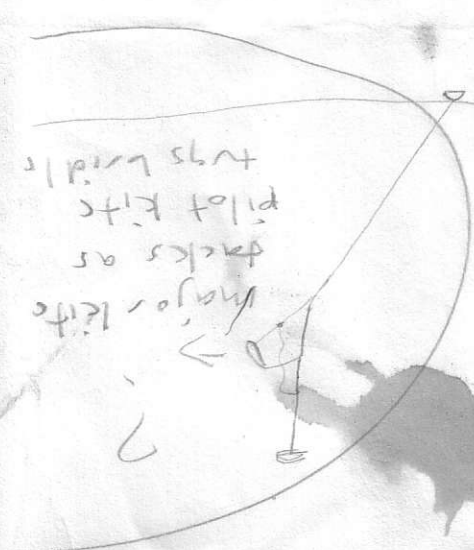 ?
major kite
tacks as
pilot kite
tugs bridle